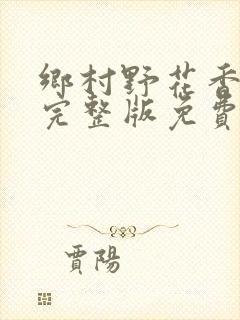 鄉村野花香
完整版免費
賈陽